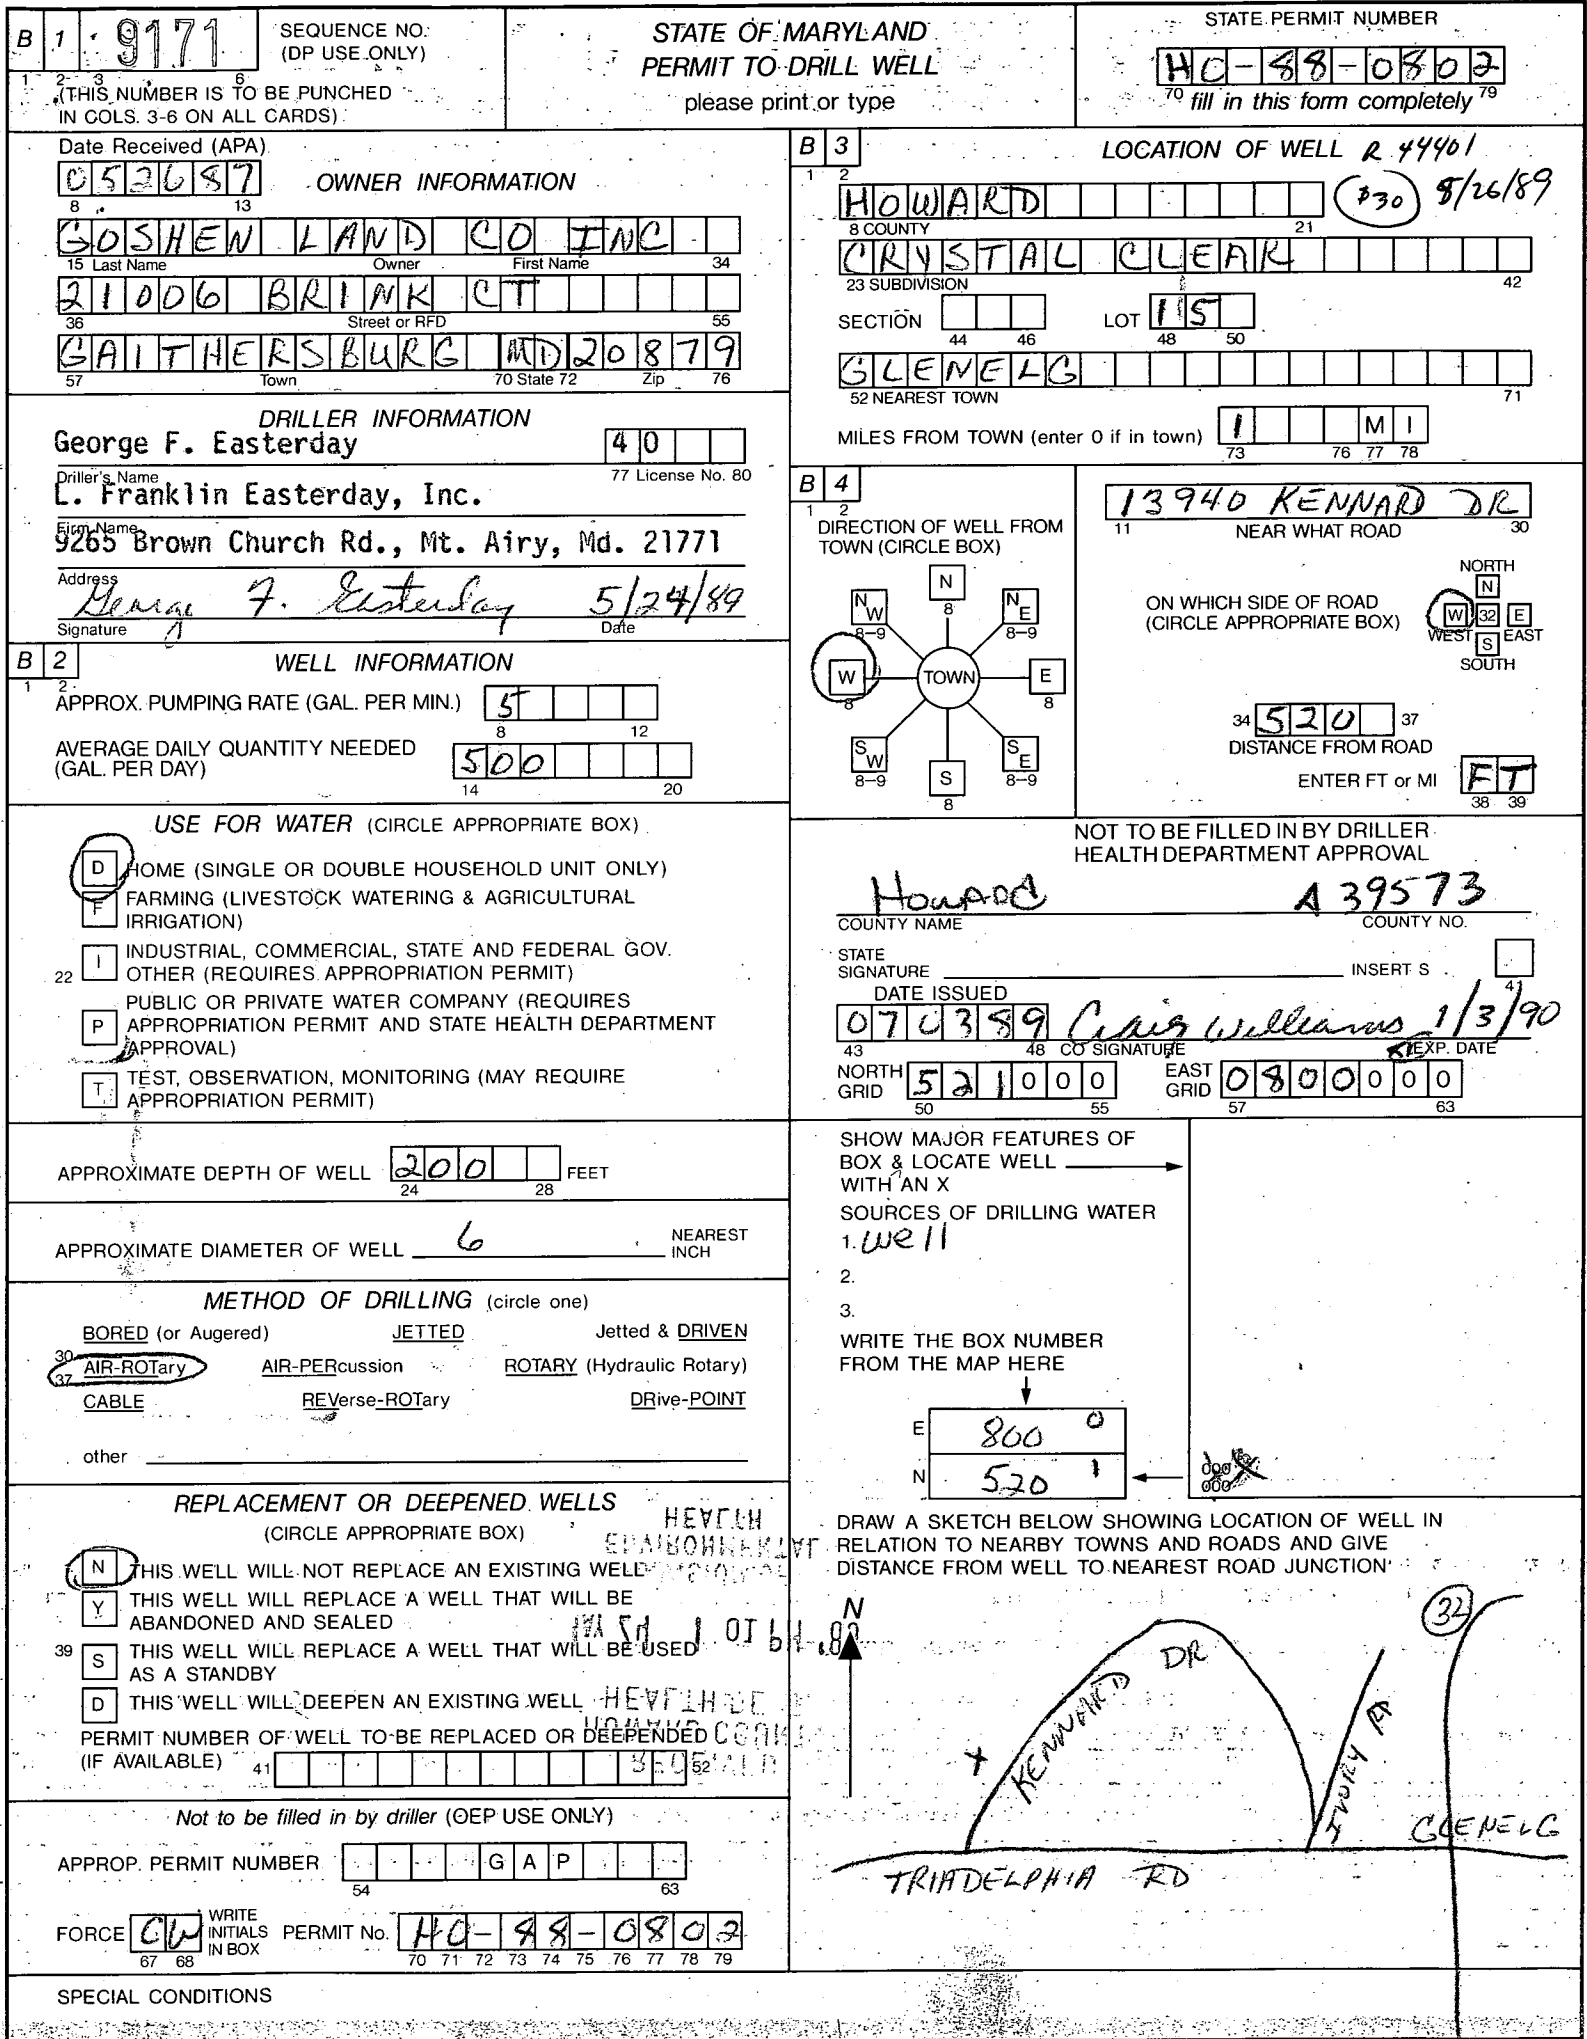 B 1 9171
SEQUENCE NO.
(DP USE ONLY)
1 2 3 6
(THIS NUMBER IS TO BE PUNCHED
IN COLS. 3-6 ON ALL CARDS)
STATE OF MARYLAND
PERMIT TO DRILL WELL
please print or type
STATE PERMIT NUMBER
HO-88-0802
70 fill in this form completely 79
Date Received (APA)
052687
8 13
OWNER INFORMATION
GOSHEN LAND CO INC
15 Last Name Owner First Name 34
21006 BRINK CT
36 Street or RFD 55
GAITHERSBURG MD 20879
57 Town 70 State 72 Zip 76
DRILLER INFORMATION
George F. Easterday 40
Driller's Name 77 License No. 80
L. Franklin Easterday, Inc.
Firm Name
9265 Brown Church Rd., Mt. Airy, Md. 21771
Address
George F. Easterday 5/24/89
Signature Date
B 2 WELL INFORMATION
1 2
APPROX. PUMPING RATE (GAL. PER MIN.) 5
8 12
AVERAGE DAILY QUANTITY NEEDED
(GAL. PER DAY) 500
14 20
USE FOR WATER (CIRCLE APPROPRIATE BOX)
D HOME (SINGLE OR DOUBLE HOUSEHOLD UNIT ONLY)
F FARMING (LIVESTOCK WATERING & AGRICULTURAL
IRRIGATION)
22 I INDUSTRIAL, COMMERCIAL, STATE AND FEDERAL GOV.
OTHER (REQUIRES APPROPRIATION PERMIT)
P PUBLIC OR PRIVATE WATER COMPANY (REQUIRES
APPROPRIATION PERMIT AND STATE HEALTH DEPARTMENT
APPROVAL)
T TEST, OBSERVATION, MONITORING (MAY REQUIRE
APPROPRIATION PERMIT)
APPROXIMATE DEPTH OF WELL 200 FEET
24 28
APPROXIMATE DIAMETER OF WELL 6 NEAREST
INCH
METHOD OF DRILLING (circle one)
BORED (or Augered) JETTED Jetted & DRIVEN
30 AIR-ROTary AIR-PERcussion ROTARY (Hydraulic Rotary)
37
CABLE REVerse-ROTary DRive-POINT
other
REPLACEMENT OR DEEPENED WELLS
(CIRCLE APPROPRIATE BOX)
N THIS WELL WILL NOT REPLACE AN EXISTING WELL
Y THIS WELL WILL REPLACE A WELL THAT WILL BE
ABANDONED AND SEALED
39 S THIS WELL WILL REPLACE A WELL THAT WILL BE USED
AS A STANDBY
D THIS WELL WILL DEEPEN AN EXISTING WELL
PERMIT NUMBER OF WELL TO BE REPLACED OR DEEPENED
(IF AVAILABLE) 41 52
Not to be filled in by driller (OEP USE ONLY)
APPROP. PERMIT NUMBER G A P
54 63
FORCE CW WRITE
INITIALS
IN BOX
67 68
PERMIT No. HO-88-0802
70 71 72 73 74 75 76 77 78 79
SPECIAL CONDITIONS
B 3 LOCATION OF WELL R 44401
1 2
HOWARD $30 8/26/89
8 COUNTY 21
CRYSTAL CLEAR
23 SUBDIVISION 42
SECTION LOT 15
44 46 48 50
GLENELG
52 NEAREST TOWN 71
MILES FROM TOWN (enter 0 if in town) 1 M I
73 76 77 78
B 4
1 2
DIRECTION OF WELL FROM
TOWN (CIRCLE BOX)
N
8
NW NE
8-9 8-9
W TOWN E
8 8
SW SE
8-9 8-9
S
8
13940 KENNARD DR
11 NEAR WHAT ROAD 30
ON WHICH SIDE OF ROAD
(CIRCLE APPROPRIATE BOX)
NORTH
N
W 32 E
WEST EAST
S
SOUTH
34 520 37
DISTANCE FROM ROAD
ENTER FT or MI FT
38 39
NOT TO BE FILLED IN BY DRILLER
HEALTH DEPARTMENT APPROVAL
Howard A 39573
COUNTY NAME COUNTY NO.
STATE
SIGNATURE INSERT S
41
DATE ISSUED
070389 Craig Williams 1/3/90
43 48 CO SIGNATURE EXP. DATE
NORTH
GRID 521000
50 55
EAST
GRID 0800000
57 63
SHOW MAJOR FEATURES OF
BOX & LOCATE WELL
WITH AN X
SOURCES OF DRILLING WATER
1. well
2.
3.
WRITE THE BOX NUMBER
FROM THE MAP HERE
E 800 0
N 520 1
000
000
DRAW A SKETCH BELOW SHOWING LOCATION OF WELL IN
RELATION TO NEARBY TOWNS AND ROADS AND GIVE
DISTANCE FROM WELL TO NEAREST ROAD JUNCTION
N
32
KENNARD DR
X
IVORY RD
GLENELG
TRIADELPHIA RD